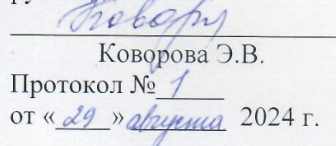 Коворова Э.В.
Протокол № 1
от « 29 » августа 2024 г.